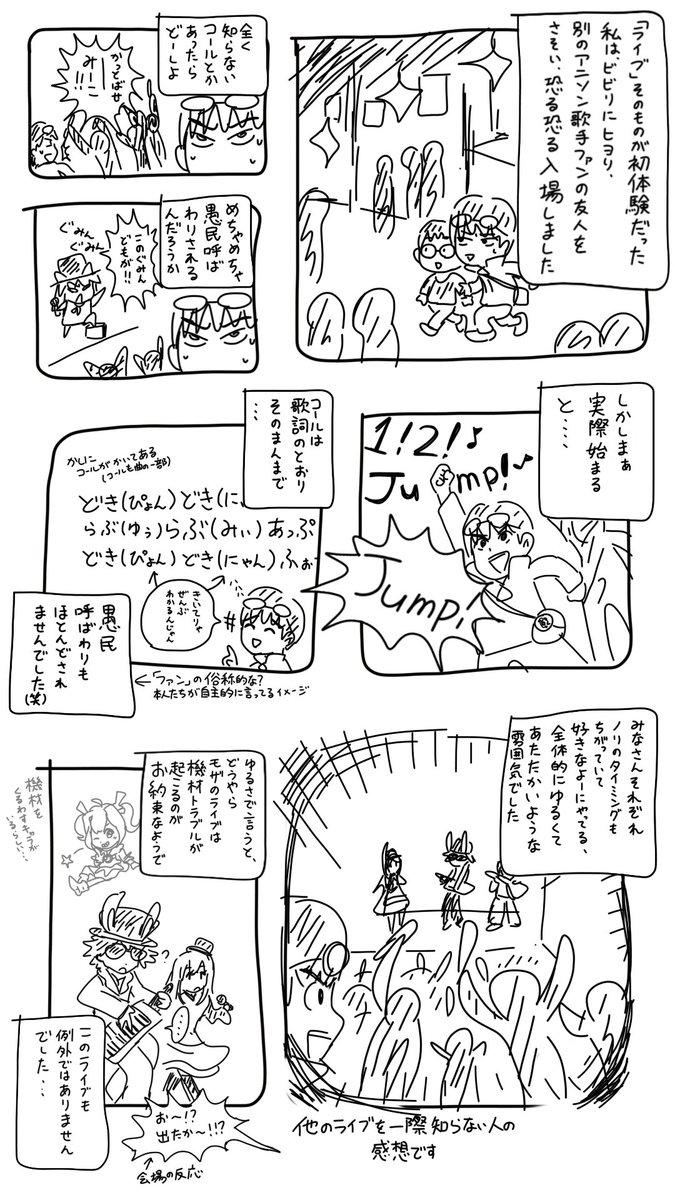 「ライブ」そのものが初体験だった
私は、ビビりにヒヨり、
別のアニソン歌手ファンの友人を
さそい、恐る恐る入場しました
全く
知らない
コールとか
あったら
どーしよ
かっとばせ
みーこ
!!
めちゃめちゃ
愚民呼ば
わりされる
んだろうか
このぐみん
どもが!!
ぐみん
ぐみん
しかしまぁ
実際始まる
と・・・・
1!2!♪
Jump!♪
Jump!
コールは
歌詞のとおり
そのまんまで
・・・
かしに
コールがかいてある
(コールも曲の一部)
どき(ぴょん)どき(にゃ
らぶ(ゆぅ)らぶ(みぃ)あっぷ
どき(ぴょん)どき(にゃん)ふぉ
きいてりゃ
ぜんぶ
わかるんじゃん
愚民
呼ばわりも
ほとんどされ
ませんでした(笑)
←「ファン」の俗称的な?
本人たちが自主的に言ってるイメージ
みなさんそれぞれ
ノリのタイミングも
ちがっていて
好きなよーにやってる、
全体的にゆるくて
あたたかいような
雰囲気でした
他のライブを一際知らない人の
感想です
ゆるさで言うと、
どうやら
モザのライブは
機材トラブルが
起こるのが
お約束なようで
機材を
くるわすキャラが
いるらしい…
?
…
このライブも
例外ではありません
でした・・・
お〜!?
出たか〜!!?
会場の反応